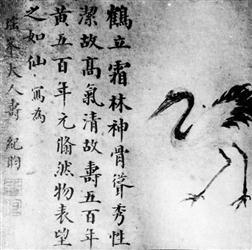 鶴立霜林神骨聳秀性
潔故高氣清故壽五百年
黃五百年元翛然物表望
之如仙 寫為
夫人壽 紀昀